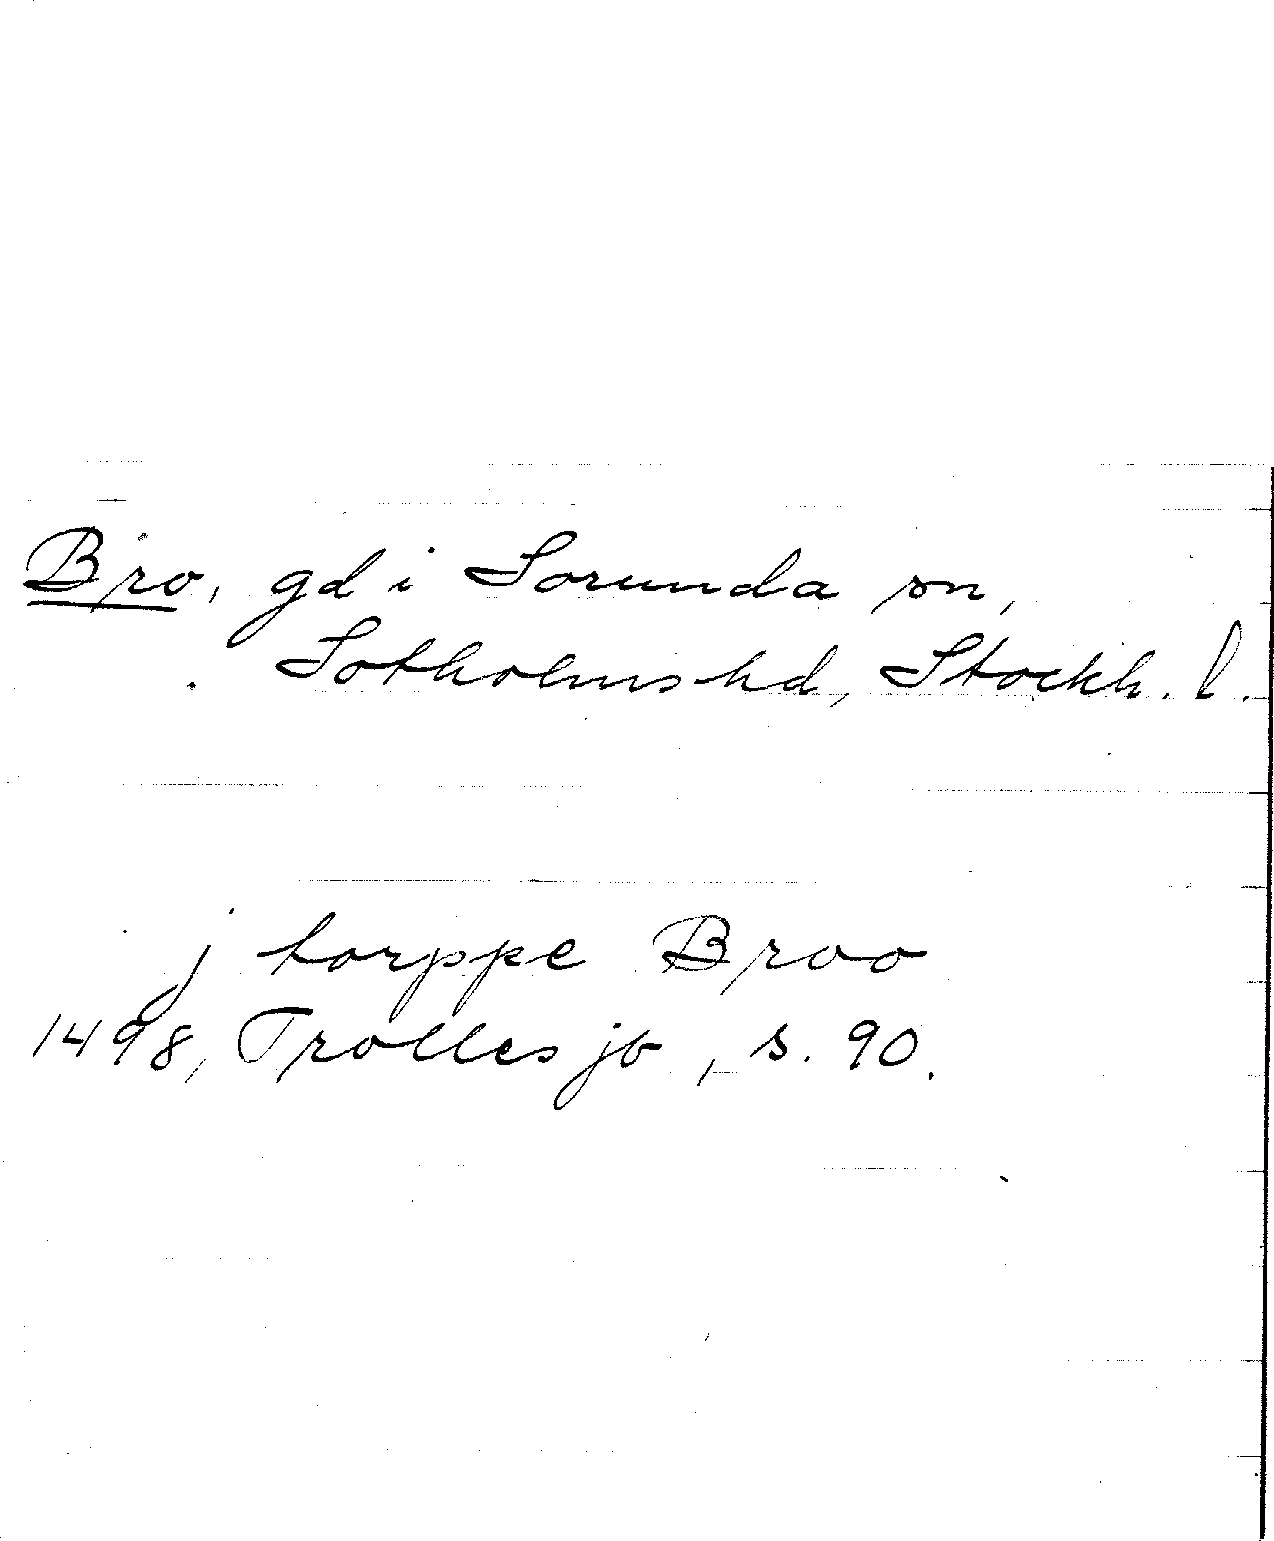 Bro, gd i Sorunda sn,
Sotholms hd, Stockh. l.
j torppe Broo
1498, Trolles jb, s. 90.